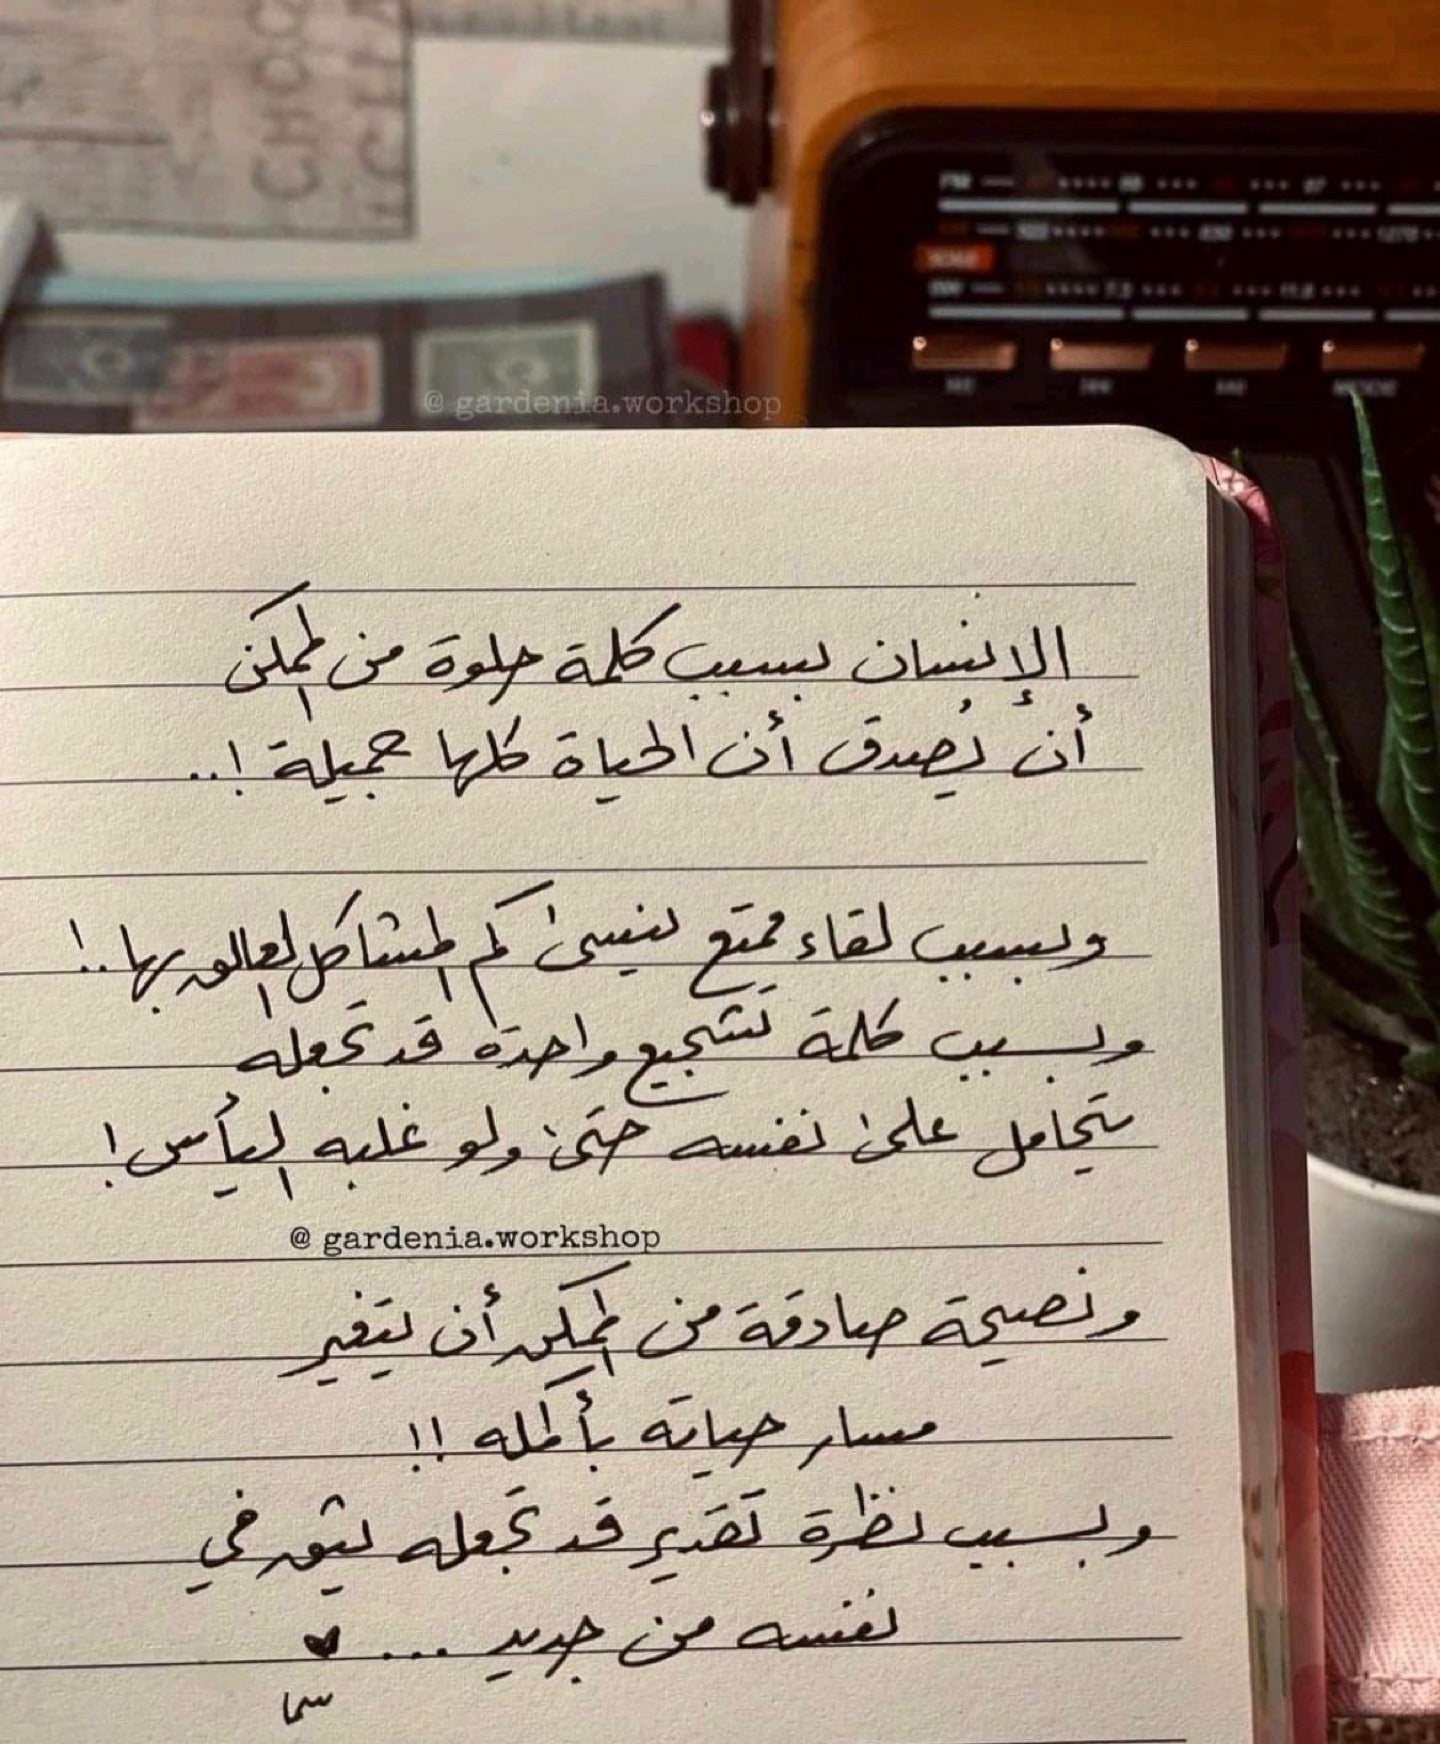 CHOC
@ gardenia.workshop
الإنسان بسبب كلمة حلوة من الممكن
أن يُصدق أن الحياة كلها جميلة !..
وبسبب لقاء ممتع ينسىٰ كم المشاكل العالق بها ..!
وبسبب كلمة تشجيع واحدة قد تجعله
يتحامل علىٰ نفسه حتىٰ ولو غلبه اليأس !
@ gardenia.workshop
ونصيحة صادقة من الممكن أن يتغير
مسار حياته بأكمله !!
وبسبب نظرة تقدير قد تجعله يثق في
نفسه من جديد ... ♥
سما